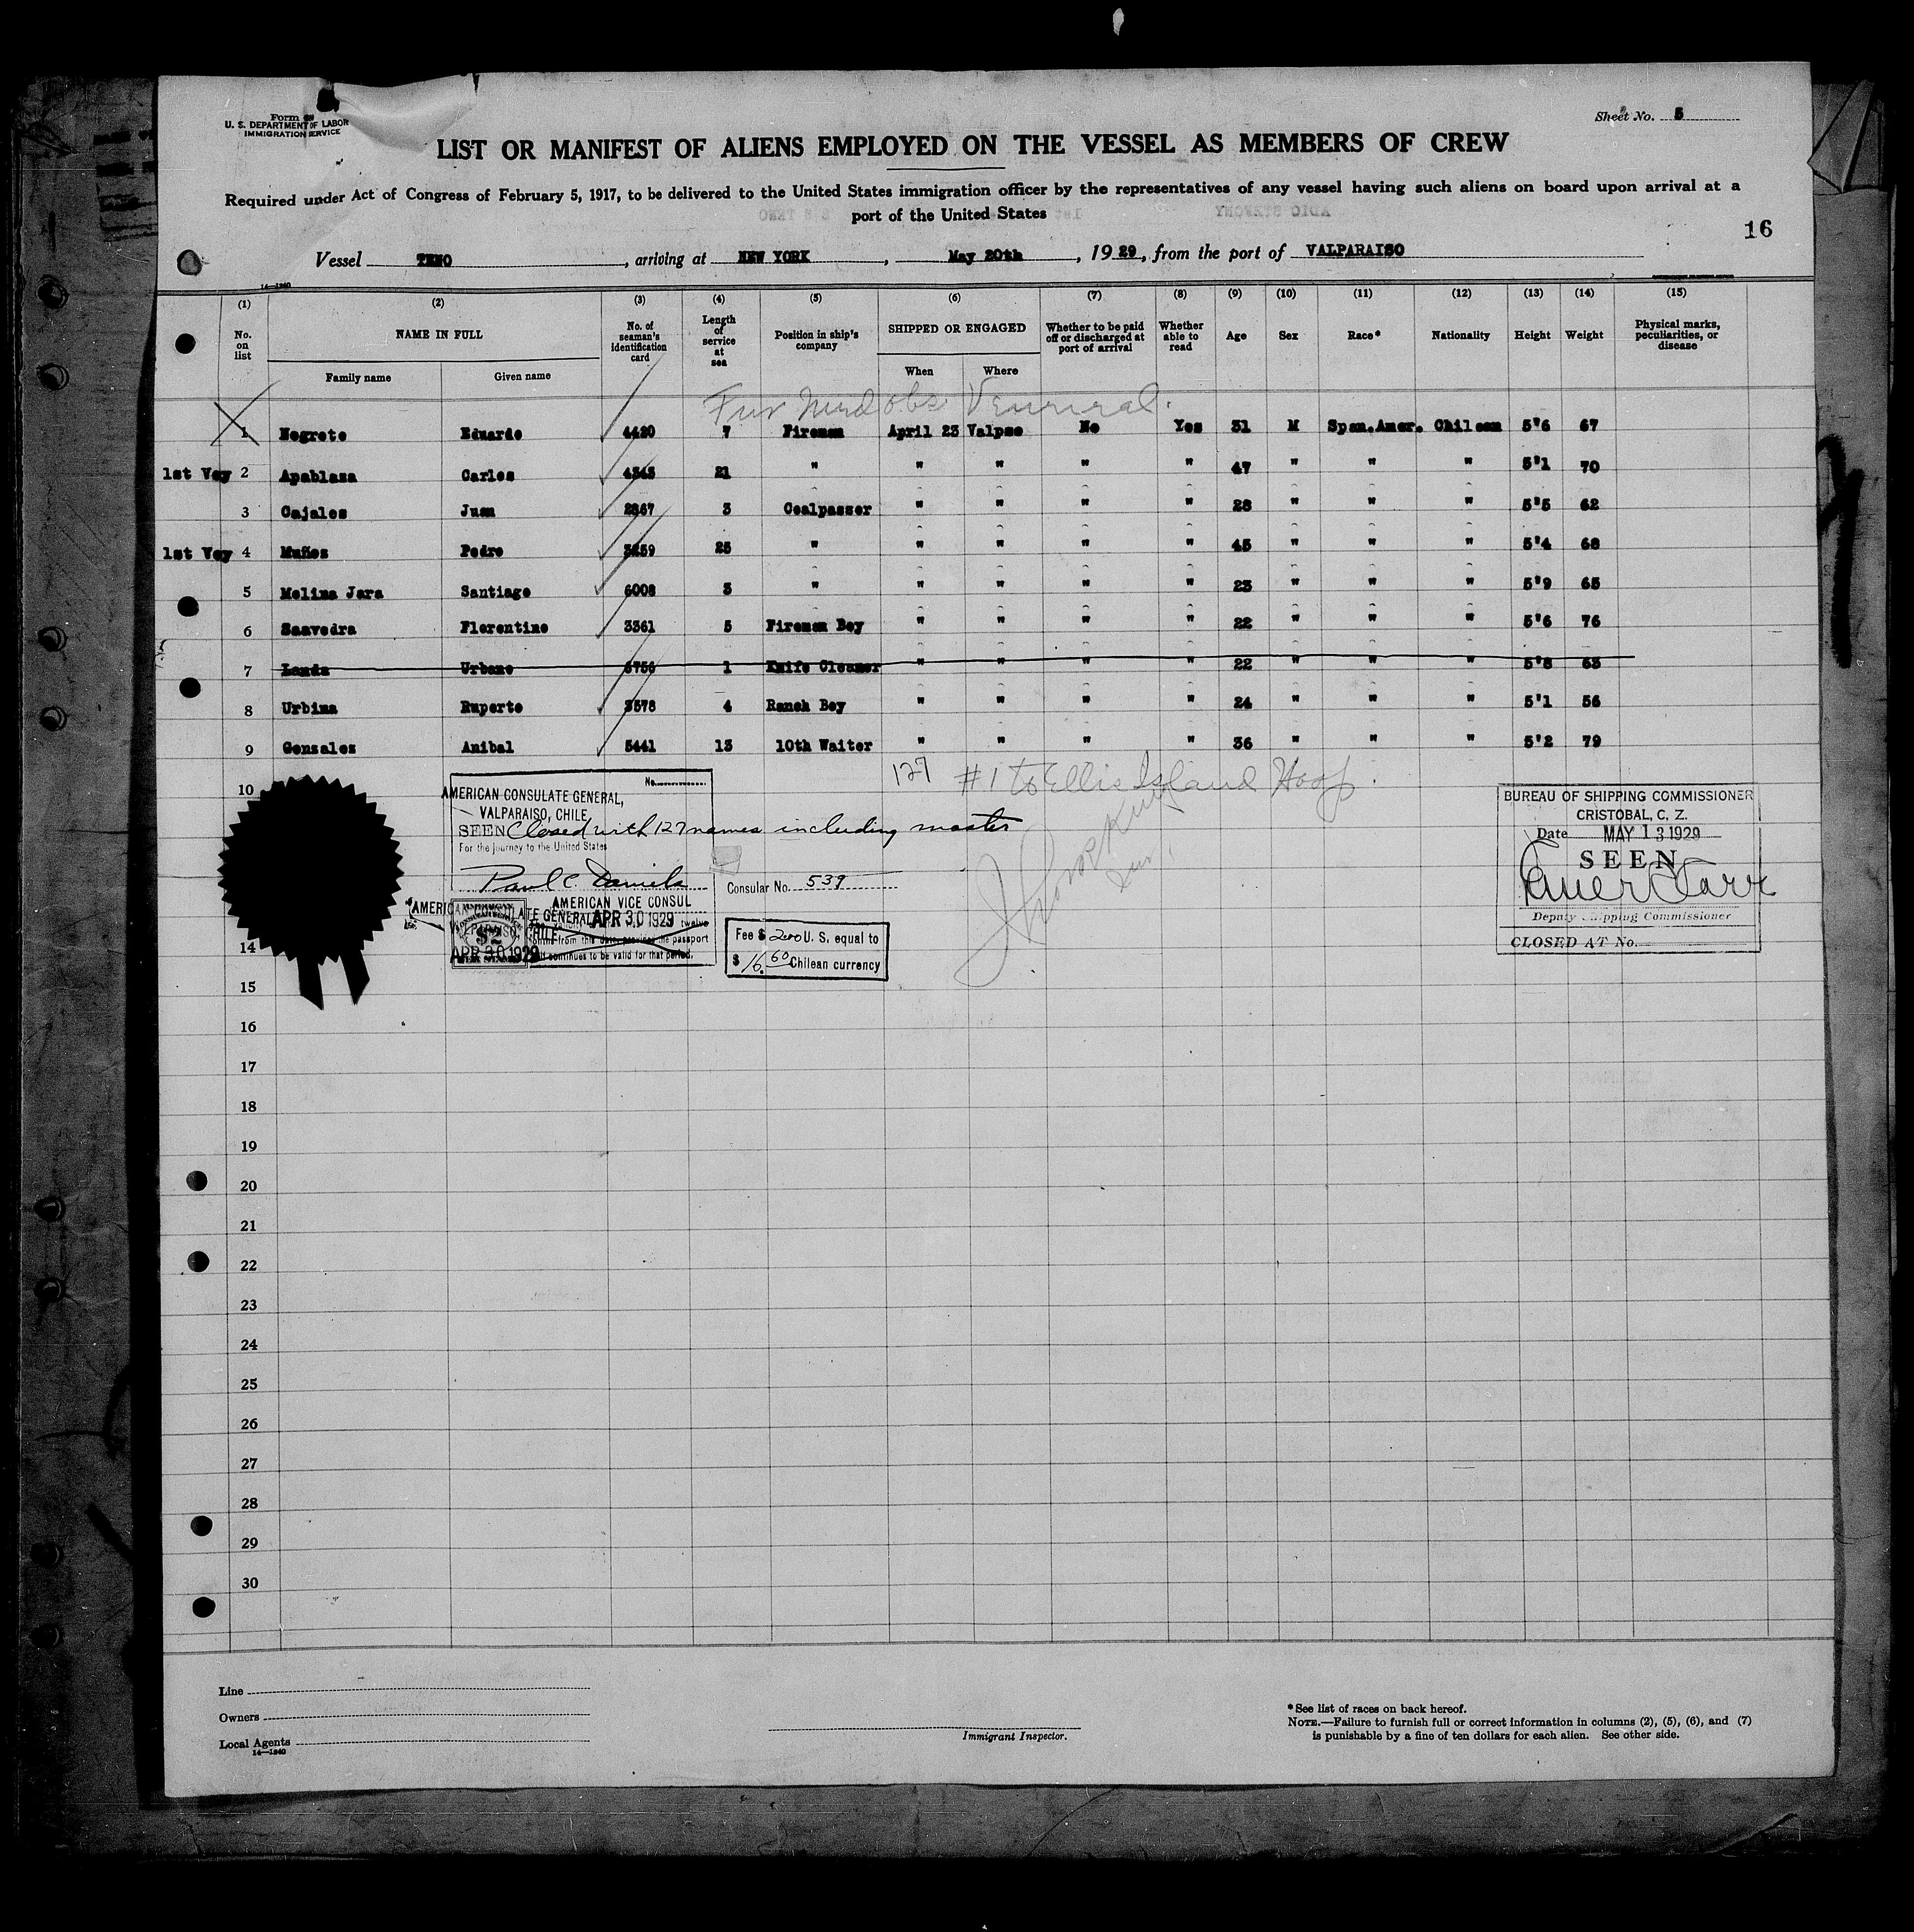 Form
U. S. DEPARTMENT OF LABOR
IMMIGRATION SERVICE
Sheet No. 5
LIST OR MANIFEST OF ALIENS EMPLOYED ON THE VESSEL AS MEMBERS OF CREW
Required under Act of Congress of February 5, 1917, to be delivered to the United States immigration officer by the representatives of any vessel having such aliens on board upon arrival at a
port of the United States
16
Vessel TENO, arriving at NEW YORK, May 20th, 1929, from the port of VALPARAISO
14—1240
(1) (2) (3) (4) (5) (6) (7) (8) (9) (10) (11) (12) (13) (14) (15)
No. on list NAME IN FULL No. of seaman's identification card Length of service at sea Position in ship's company SHIPPED OR ENGAGED Whether to be paid off or discharged at port of arrival Whether able to read Age Sex Race* Nationality Height Weight Physical marks, peculiarities, or disease
Family name Given name When Where
Fur Med obs Venereal.
1 Negrete Eduardo 4420 7 Fireman April 23 Valpso No Yes 31 M Span.Amer. Chilean 5'6 67
1st Voy 2 Apablaza Carlos 4345 21 " " " " " 47 " " " 5'1 70
3 Cajales Juan 2867 3 Coalpasser " " " " 28 " " " 5'5 62
1st Voy 4 Muñoz Pedro 3259 25 " " " " " 45 " " " 5'4 68
5 Molina Jara Santiago 6008 3 " " " " " 23 " " " 5'9 65
6 Saavedra Florentino 3361 5 Fireman Boy " " " " 22 " " " 5'6 76
7 Landa Urbano 6756 1 Knife Cleaner " " " " 22 " " " 5'8 63
8 Urbina Ruperto 3578 4 Ranch Boy " " " " 24 " " " 5'1 56
9 Gonzales Anibal 5441 13 10th Waiter " " " " 36 " " " 5'2 79
127 #1 to Ellis Island Hosp.
10
No.
AMERICAN CONSULATE GENERAL,
VALPARAISO, CHILE
SEEN Closed with 127 names including master
For the journey to the United States
Paul C. Daniels
AMERICAN VICE CONSUL
APR 30 1929
$2
APR 30 1929
months from this date, provided the passport
continues to be valid for that period.
Consular No. 539
Fee $ 2.00 U. S. equal to
$ 16.60 Chilean currency
BUREAU OF SHIPPING COMMISSIONER
CRISTOBAL, C. Z.
Date MAY 13 1929
SEEN
Deputy Shipping Commissioner
CLOSED AT No.
14
15
16
17
18
19
20
21
22
23
24
25
26
27
28
29
30
Line
Owners
Local Agents
14—1240
Immigrant Inspector.
*See list of races on back hereof.
NOTE.—Failure to furnish full or correct information in columns (2), (5), (6), and (7)
is punishable by a fine of ten dollars for each alien. See other side.